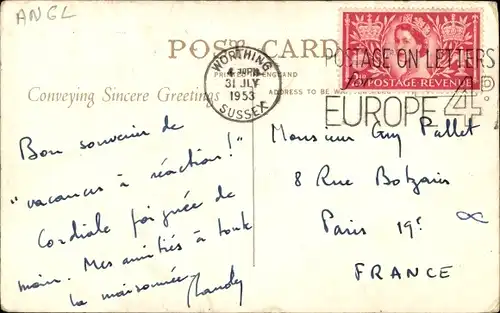 ANGL
POST CARD
PRINTED IN ENGLAND
Conveying Sincere Greetings
ADDRESS TO BE
WORTHING
31 JLY
1953
SUSSEX
POSTAGE ON LETTERS
EUROPE 4D.
2½D POSTAGE REVENUE
Bon souvenir de
"vacances à réaction!"
Cordiale poignée de
main. Mes amitiés à toute
la maisonnée.
Monsieur Guy Pallet
8 Rue Botzaris
Paris 19e
FRANCE